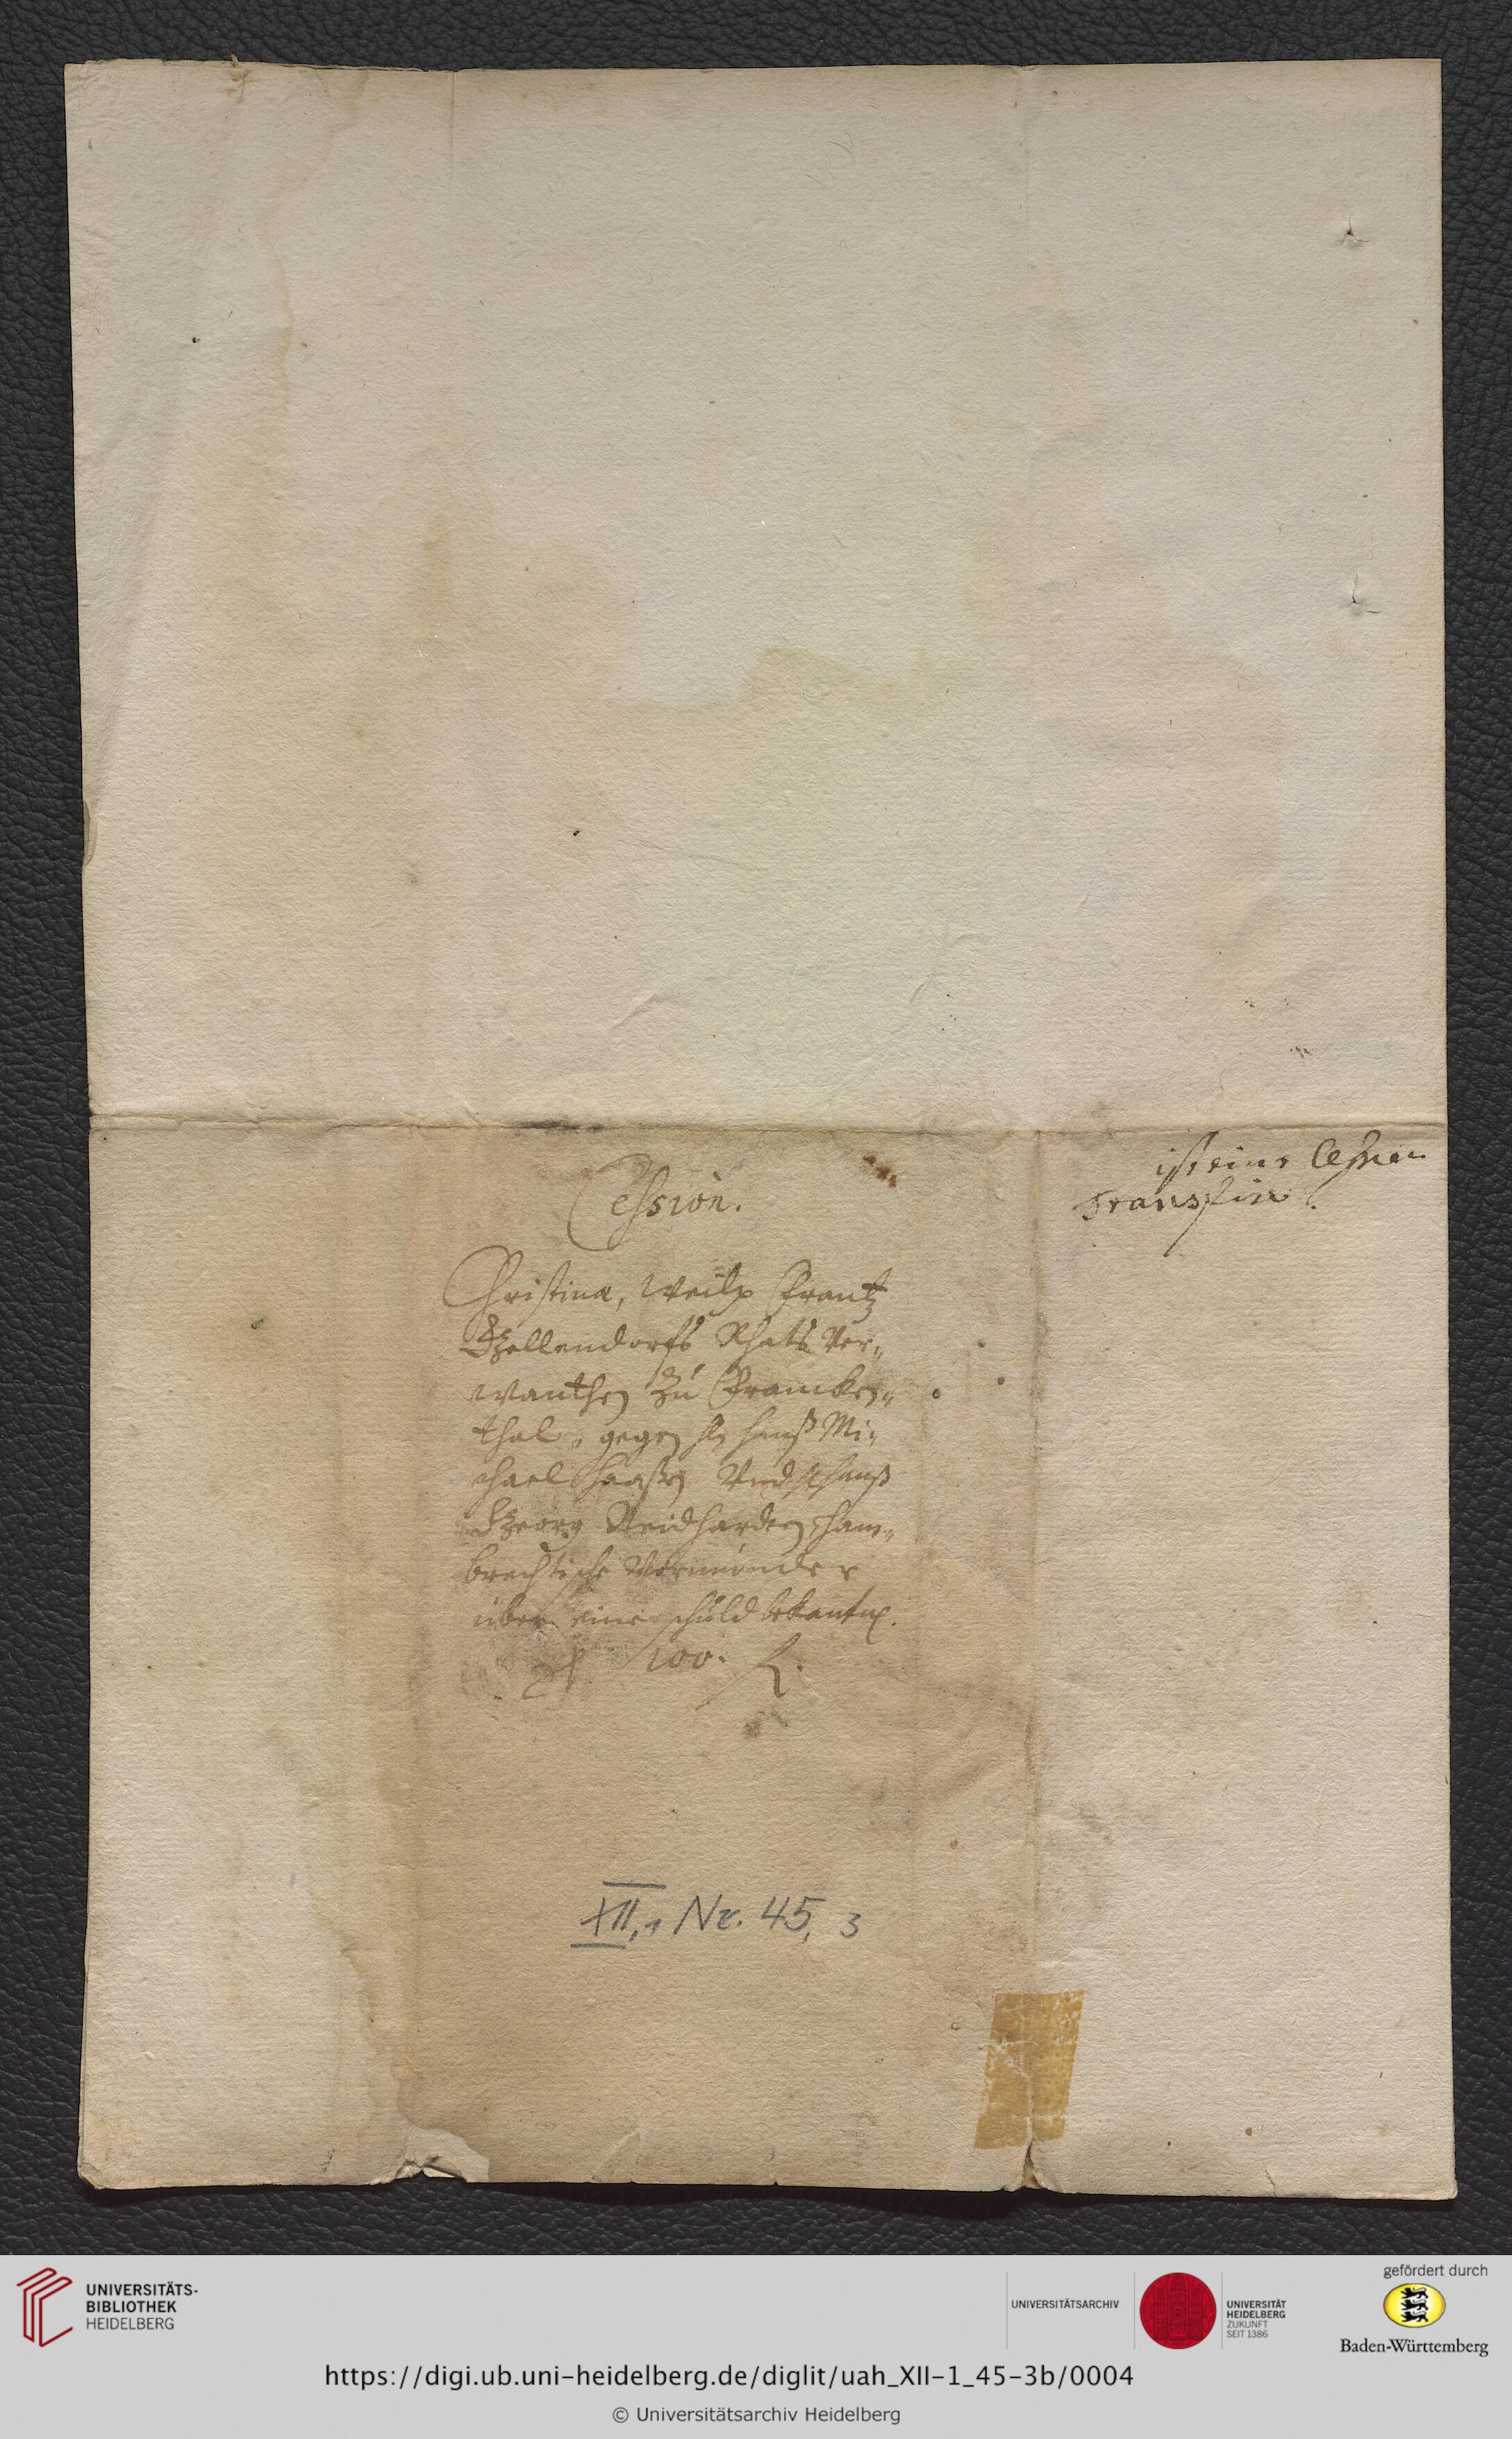 Cession.
Christina, Weilp Frantz
Gellendorffs Rhats Ver„
wanthen zu Francken„
thal, gegen Hn Hanß Mi„
chael Haaßen Vnd Hanß
Georg Neidharden, Ham„
brechtische Vormünder
über eine schuld bekantnß.
100. fl.
ist eine Cession
XII,1 Nr. 45, 3
UNIVERSITÄTS-
BIBLIOTHEK
HEIDELBERG
UNIVERSITÄTSARCHIV
UNIVERSITÄT
HEIDELBERG
ZUKUNFT
SEIT 1386
gefördert durch
Baden-Württemberg
https://digi.ub.uni-heidelberg.de/diglit/uah_XII-1_45-3b/0004
© Universitätsarchiv Heidelberg